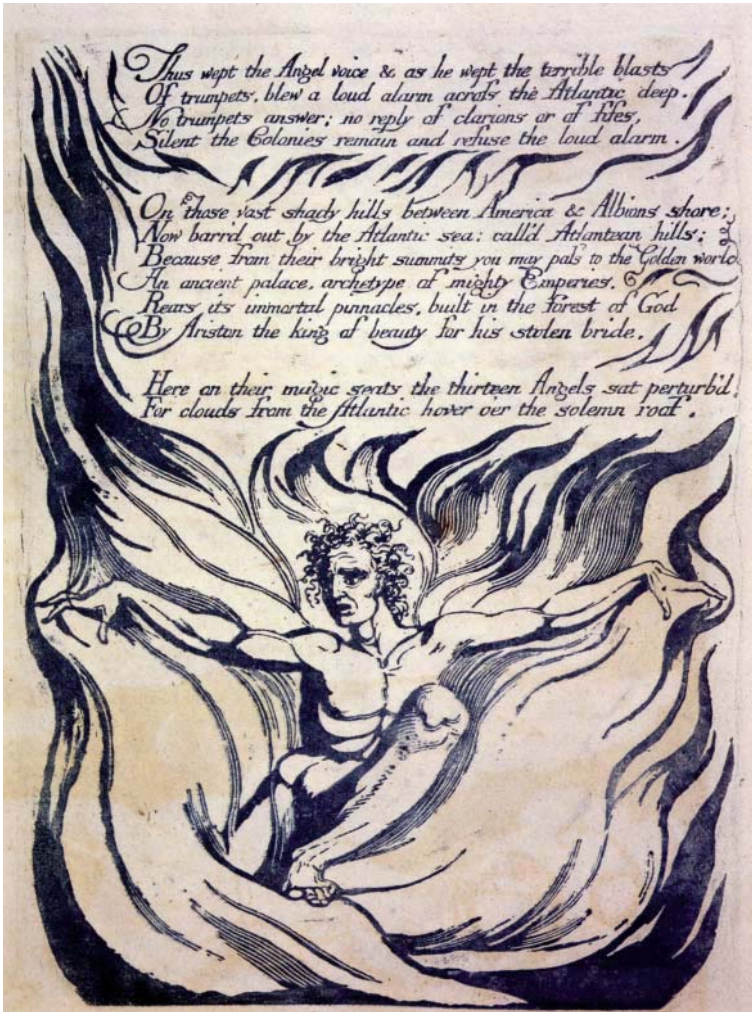 Thus wept the Angel voice & as he wept the terrible blasts
Of trumpets, blew a loud alarm acroſs the Atlantic deep.
No trumpets answer; no reply of clarions or of fifes,
Silent the Colonies remain and refuse the loud alarm.
On those vast shady hills between America & Albions shore;
Now barr'd out by the Atlantic sea: call'd Atlantean hills:
Because from their bright summits you may paſs to the Golden world
An ancient palace, archetype of mighty Emperies,
Rears its immortal pinnacles, built in the forest of God
By Ariston the king of beauty for his stolen bride,
Here on their magic seats the thirteen Angels sat perturb'd
For clouds from the Atlantic hover o'er the solemn roof.